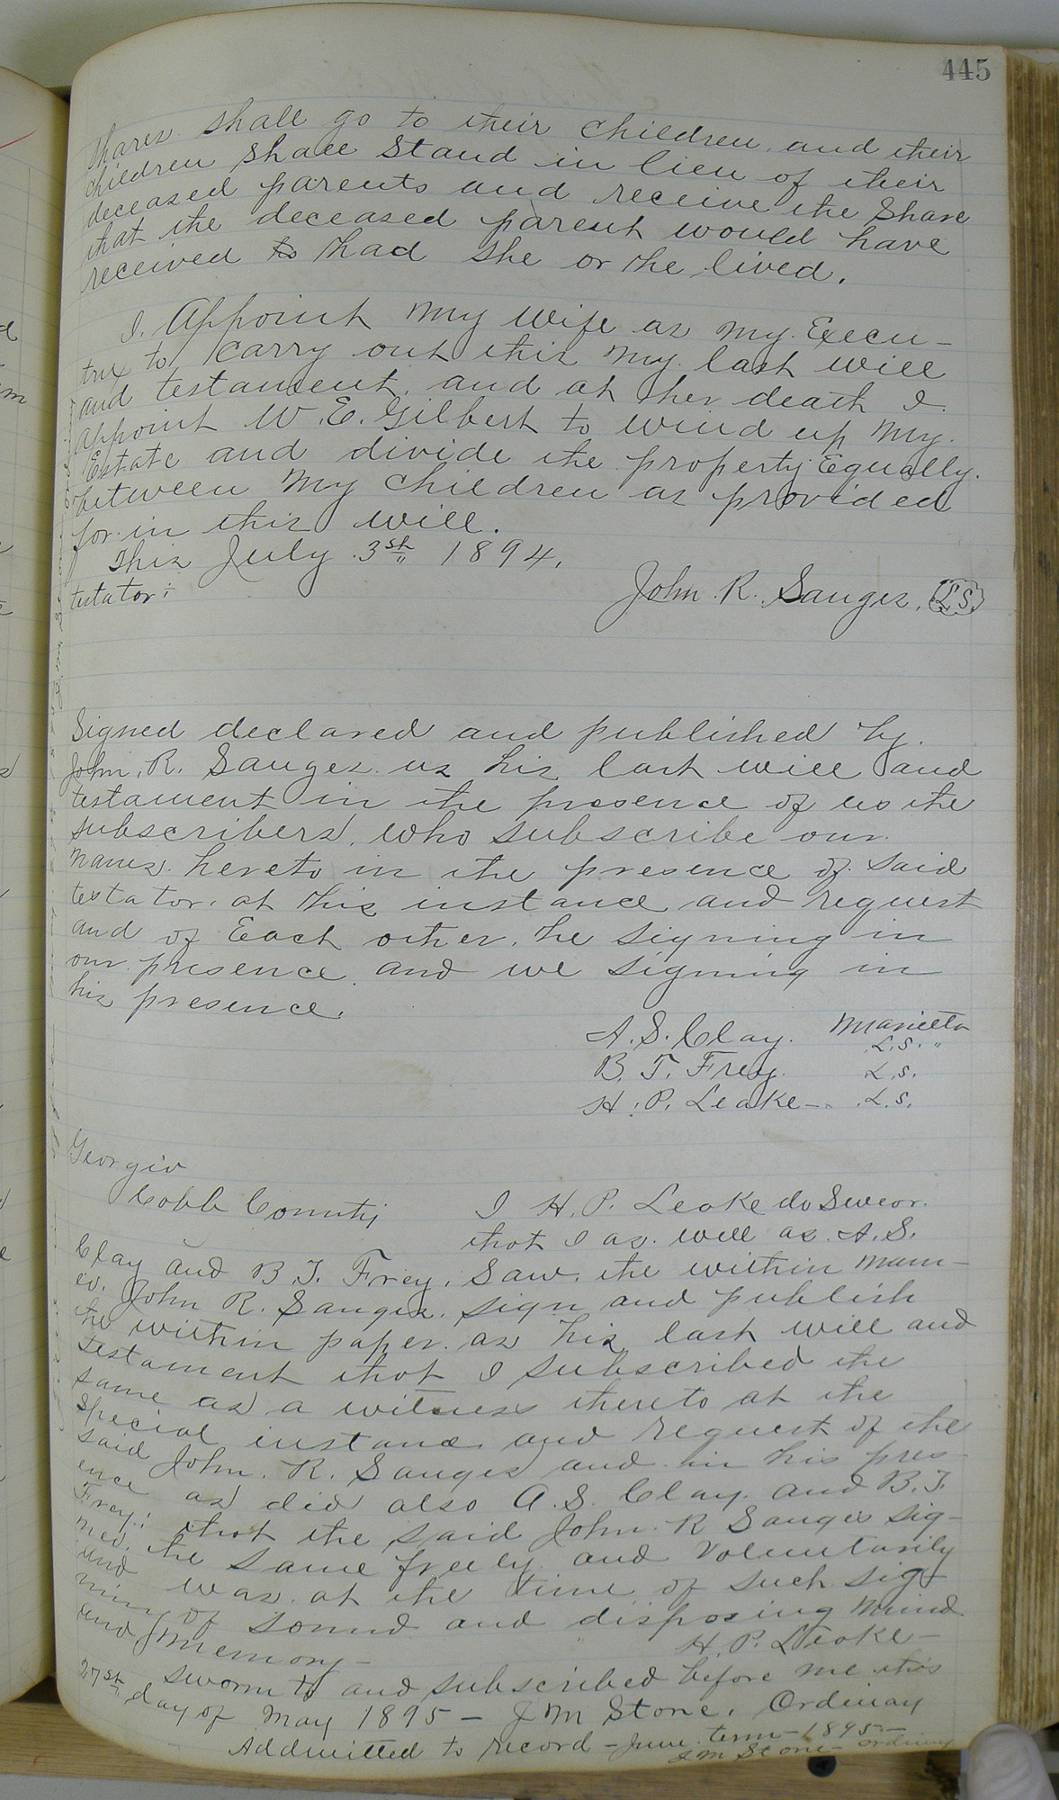 445
shares shall go to their children and their
children shall stand in lieu of their
deceased parents and receive the share
that the deceased parent would have
received to had she or the lived.
I. Appoint my wife as my Execu-
trix to carry out this my last will
and testament, and at her death I
appoint W. E. Gilbert to wind up my
Estate and divide the property Equally
between my children as provided
for in this will.
This July 3st 1894.
testator:
John R. Sanges. L.S.
Signed declared and published by
John R. Sanges as his last will and
testament in the presence of us the
subscribers, who subscribe our
names hereto in the presence of said
testator, at his instance and request
and of Each other, he signing in
our presence and we signing in
his presence.
A. S. Clay. Marietta
L.S. "
B. T. Frey. L.S.
H. P. Leake - L.S.
Georgia
Cobb County
I H. P. Leake do Swear
that I as well as A. S.
Clay and B. T. Frey. Saw. the within nam-
ed, John R. Sanges, sign and publish
the within paper as his last will and
testament that I subscribed the
same as a witness thereto at the
special instance and request of the
said John R. Sanges and in his pres
ence as did also A. S. Clay and B. T.
Frey: that the said John R Sanges sig-
ned, the same freely and voluntarily
and was at the time of such sig-
ning of sound and disposing mind
and memory -
H. P. Leake -
sworn to and subscribed before me this
27st day of May 1895 - J M Stone, Ordinary
Addmitted to record - June term - 1895 -
J M Stone - ordinary